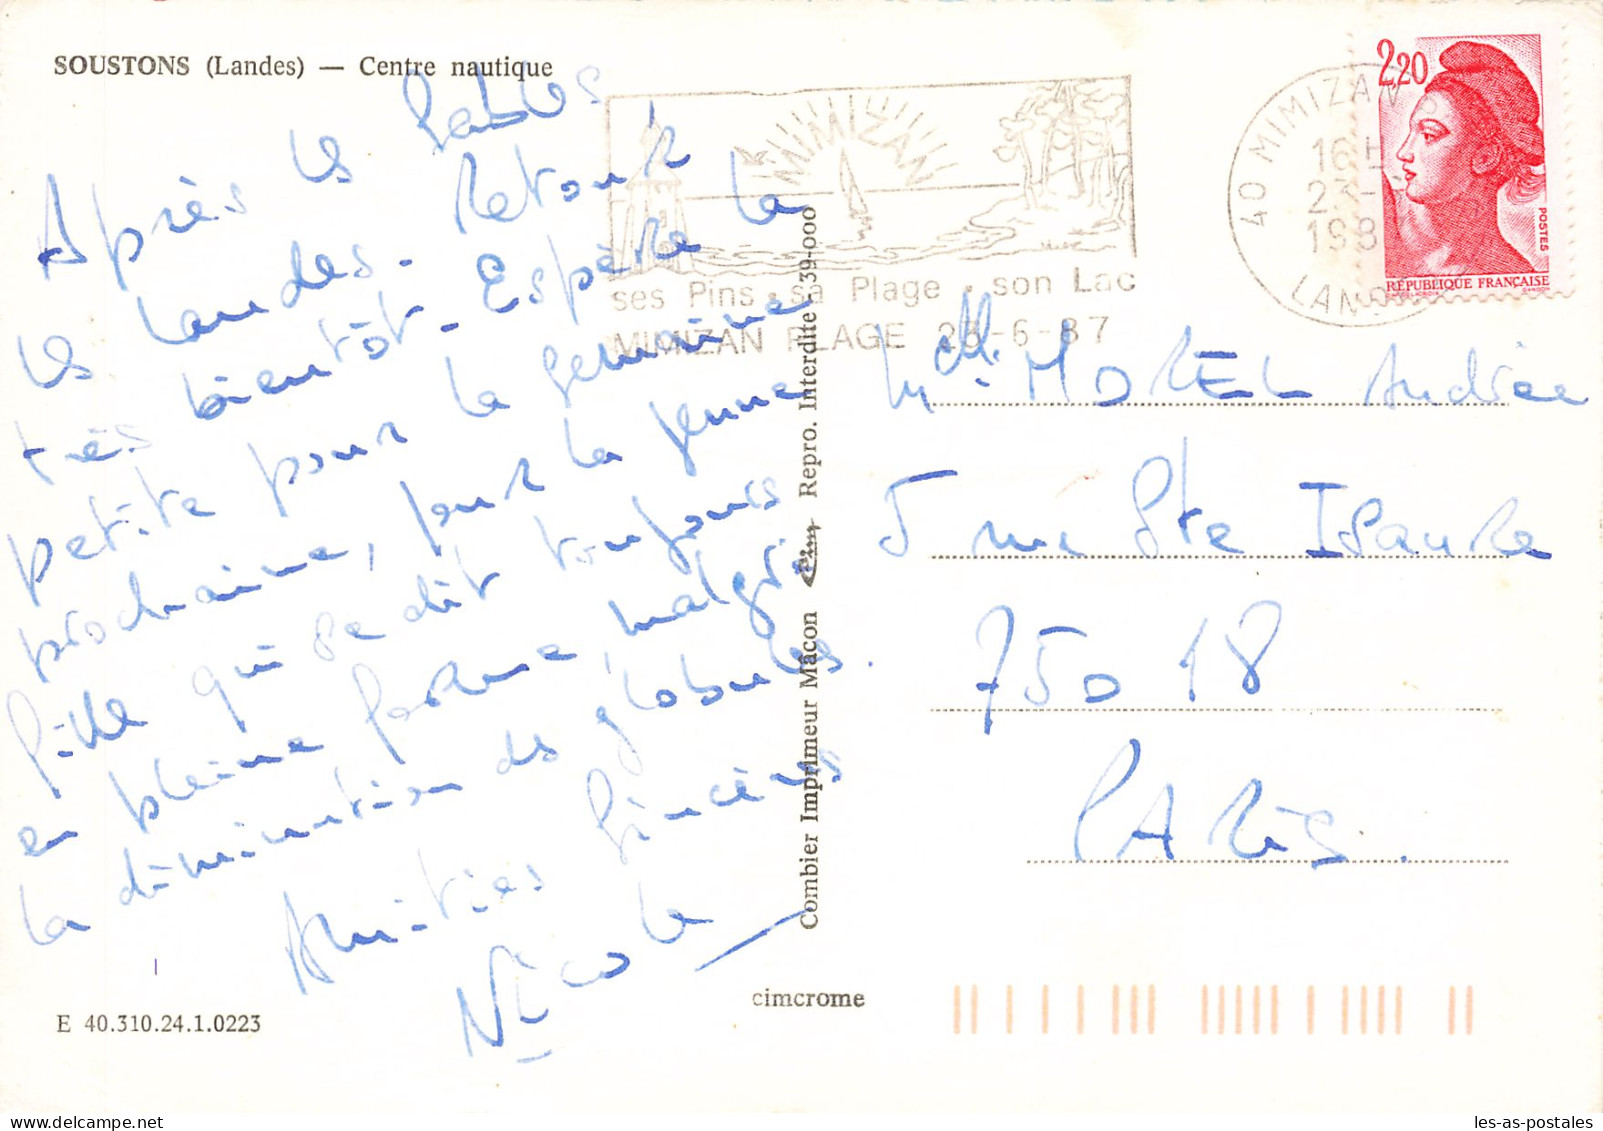 SOUSTONS (Landes) — Centre nautique
Après les Sables
les Landes. Retour
très bientôt. Espère la
petite pour la semaine
prochaine, pour la jeune
fille qui se dit toujours
en pleine forme, malgré
la diminution des globules.
Amitiés sincères
Nicole
E 40.310.24.1.0223
cimcrome
Combier Imprimeur Mâcon Repro. Interdite 39-000
MIMIZAN
ses Pins . sa Plage . son Lac
MIMIZAN PLAGE 23-6-87
40 MIMIZAN
16 H
23-
198
LAND
2,20
POSTES
RÉPUBLIQUE FRANÇAISE
Melle. MOREL Andrée
5 rue Ste Isaure
75018
PARIS.
les-as-postales.com